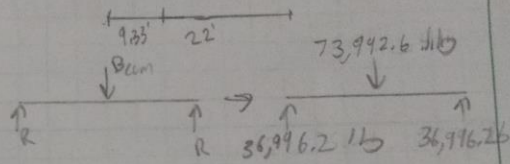 9.33' 22'
Beam 73,992.6 lb
R R 36,996.2 lb 36,996.2 lb